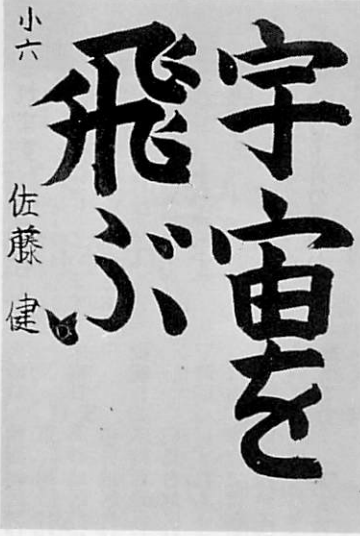 宇宙を
飛ぶ
小六 佐藤 健